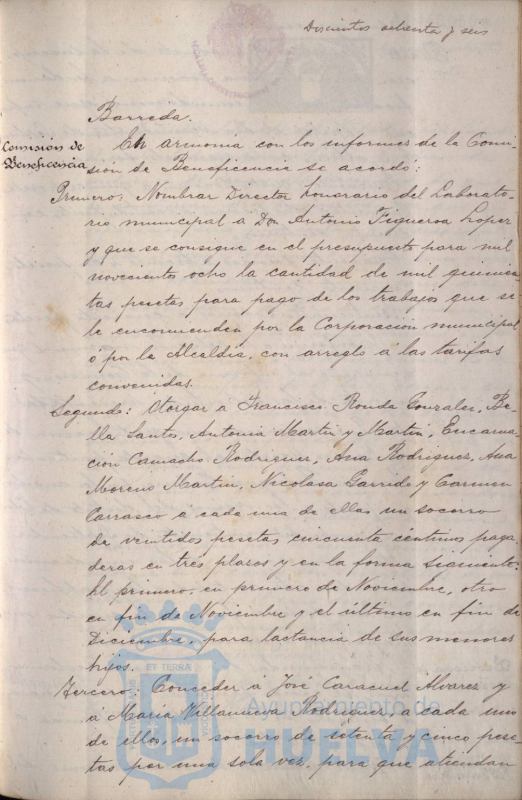 Discientos ochenta y seis
Barreda.
Comisión de
Beneficencia
En armonia con los informes de la Comi-
sión de Beneficencia se acordó:
Primero: Nombrar Director honorario del Laborato-
rio municipal a Don Antonio Figueroa Lopez
y que se consigne en el presupuesto para mil
novecientos ocho la cantidad de mil quinien-
tas pesetas para pago de los trabajos que se
le encomienden por la Corporación municipal
ó por la Alcaldía, con arreglo a las tarifas
convenidas.
Segundo: Otorgar á Francisca Ronda Gonzalez, Be-
lla Santos, Antonia Martin y Martin, Encarna-
ción Camacho Rodriguez, Ana Rodriguez, Ana
Moreno Martin, Nicolasa Garrido y Carmen
Carrasco á cada una de ellas un socorro
de veintidos pesetas cincuenta céntimos paga-
deras en tres plazos y en la forma siguiente:
El primero, en primero de Noviembre, otro
en fin de Noviembre y el último en fin de
Diciembre, para lactancia de sus menores
hijos.
Tercero: Conceder á José Caracuel Alvarez y
á Maria Villanueva Rodriguez, a cada uno
de ellos, un socorro de setenta y cinco pese-
tas por una sola vez, para que atiendan
ET TERRA
Ayuntamiento de
HUELVA